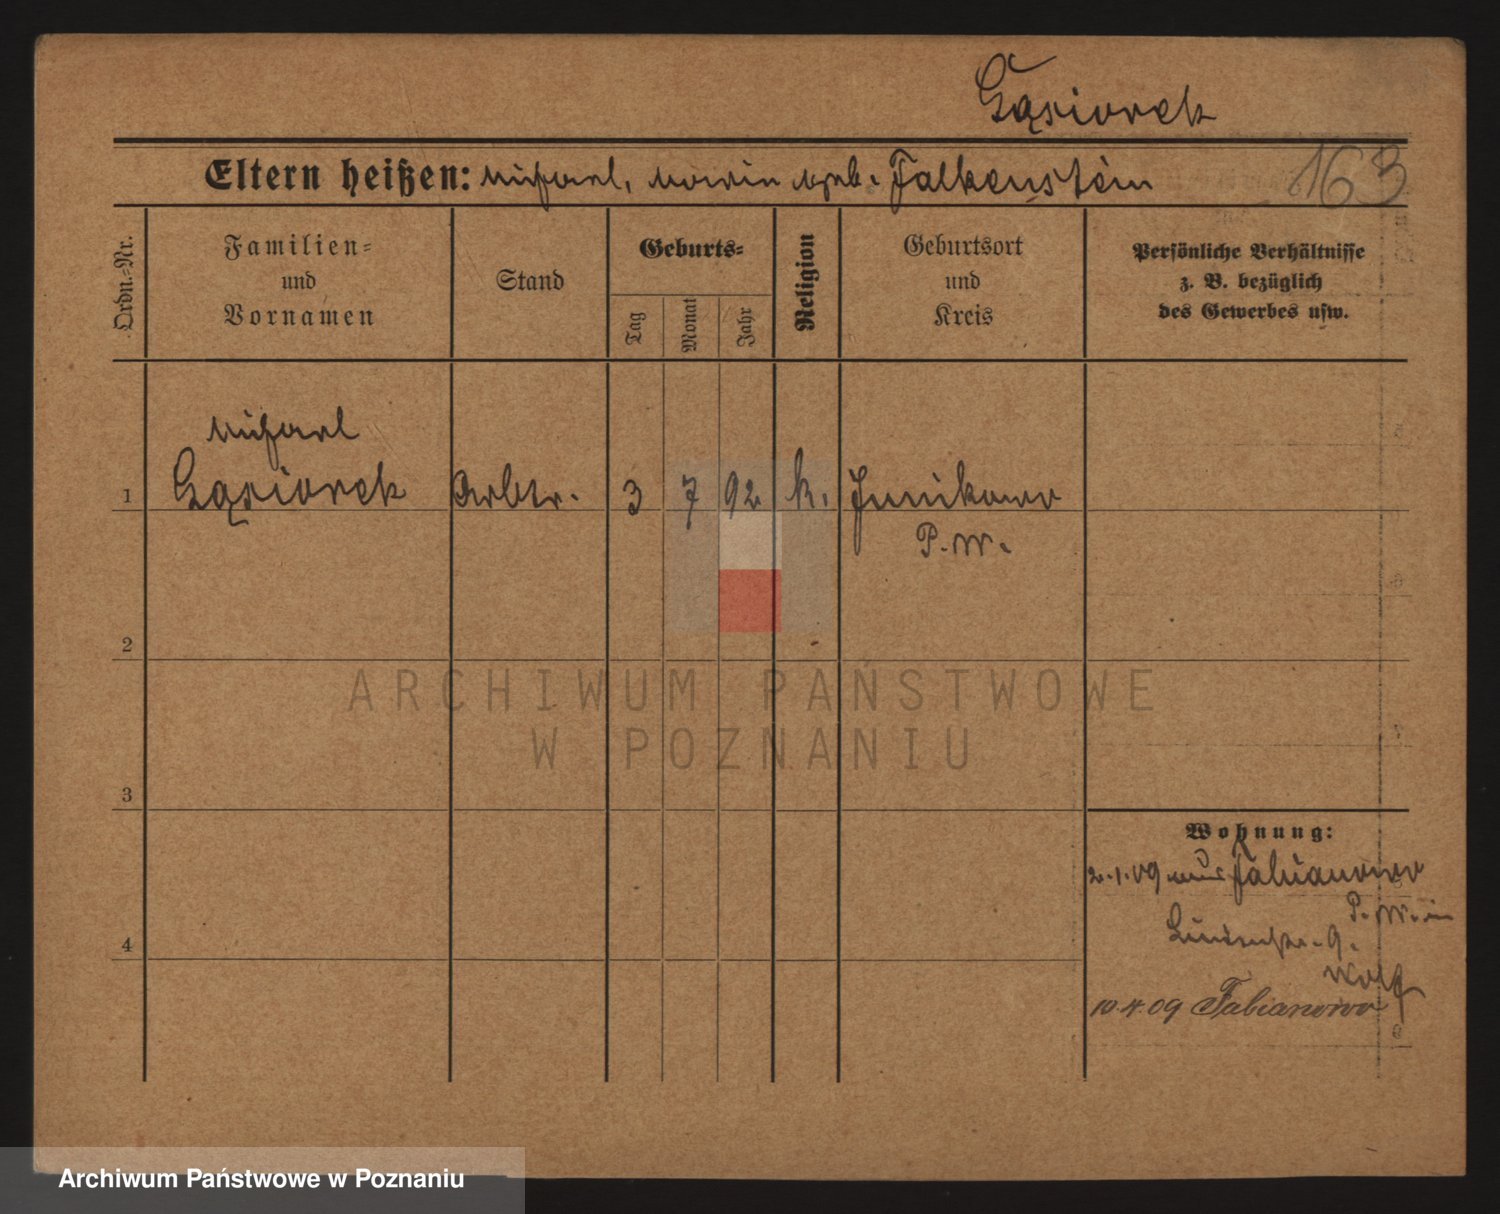 Gąsiorek
Eltern heißen: Michael, Maria geb. Falkenstein
163
Ordn.-Nr.
Familien-
und
Vornamen
Stand
Geburts-
Tag
Monat
Jahr
Religion
Geburtsort
und
Kreis
Persönliche Verhältnisse
z. B. bezüglich
des Gewerbes usw.
Michael
1 Gąsiorek Arbtr. 3 7 92 k. Junikowo
P. W.
2
3
4
Wohnung:
2.1.09 aus Fabianowo
P. W. in
Lindenstr. 9.
Wolf
10.4.09 Fabianowo
ARCHIWUM PAŃSTWOWE
W POZNANIU
Archiwum Państwowe w Poznaniu